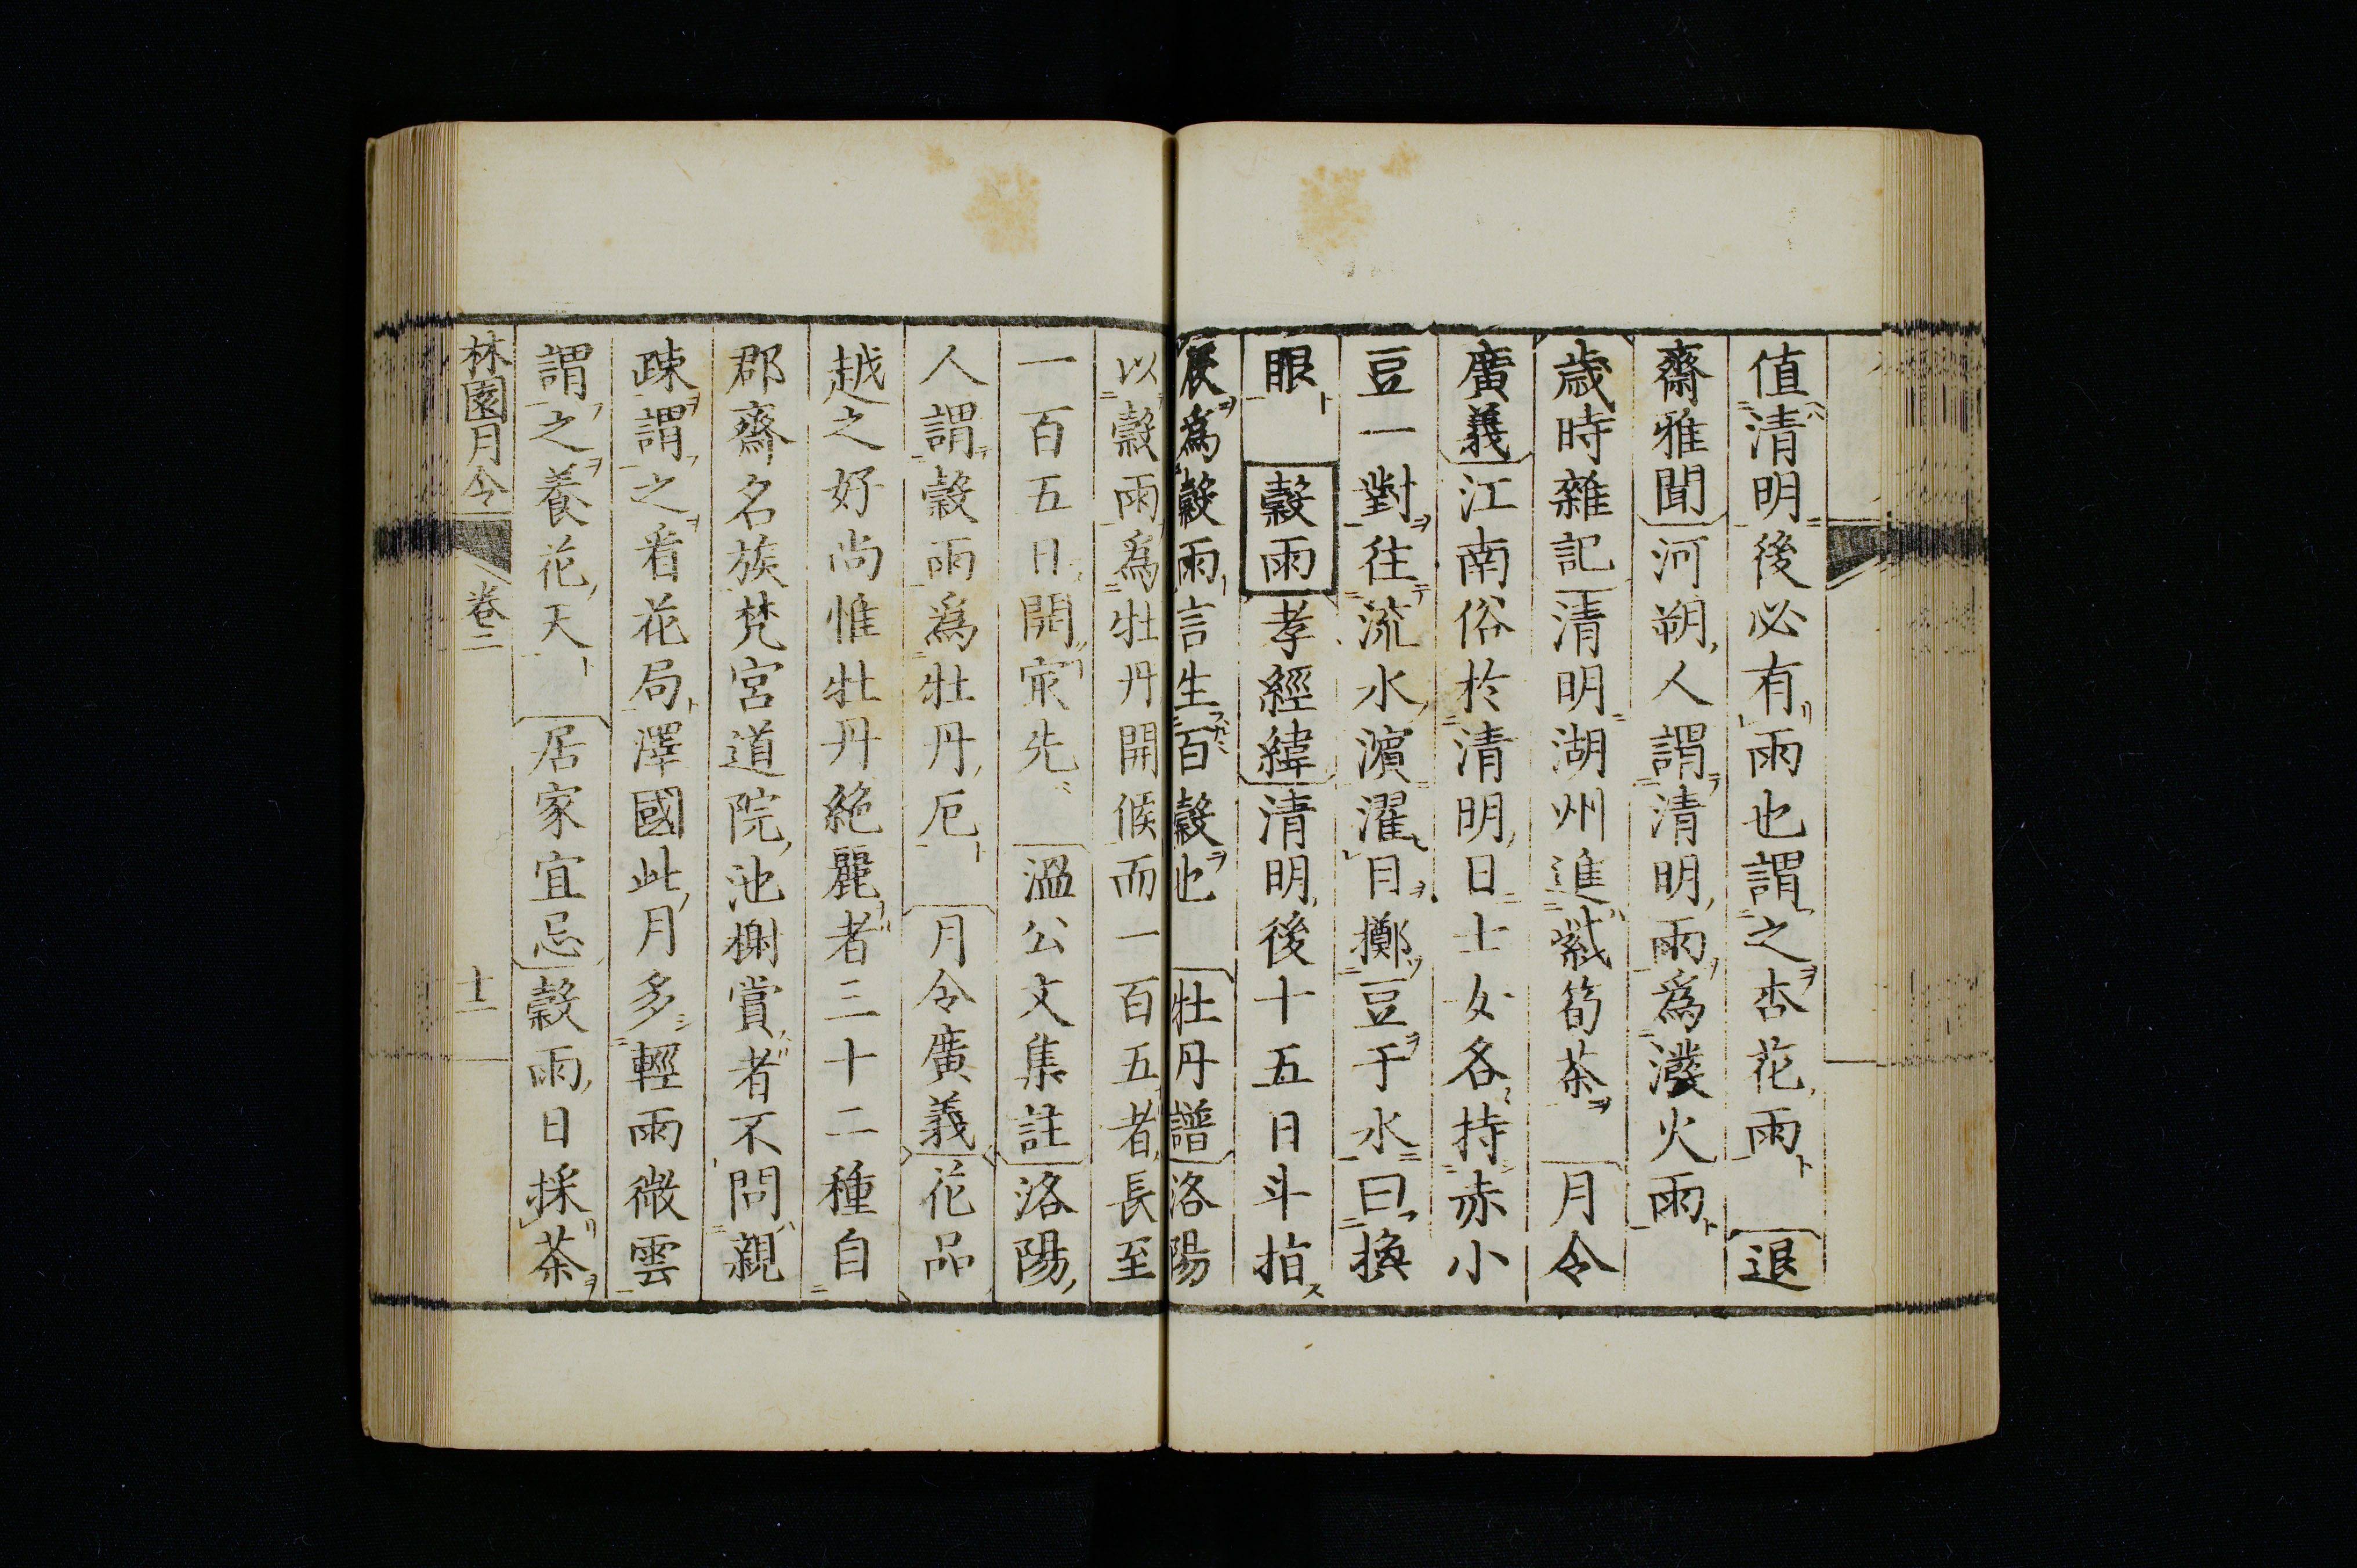 値清明後必有雨也謂之杏花雨 退
齋雅聞河朔人謂清明雨爲潑火雨
歳時雜記清明湖州進紫筍茶 月令
廣義江南俗於清明日士女各持赤小
豆一對往流水濵濯目擲豆于水曰換
眼 穀雨 孝經緯清明後十五日斗指
辰爲穀雨言生百穀也 牡丹譜洛陽
以穀雨爲牡丹開候而一百五者長至
一百五日開㝡先 温公文集註洛陽
人謂穀雨爲牡丹厄 月令廣義花品
越之好尚惟牡丹絶麗者三十二種自
郡齋名族梵宮道院池榭賞者不問親
疎謂之看花局澤國此月多輕雨微雲
謂之養花天 居家宜忌穀雨日採茶
林園月令 卷二 十一